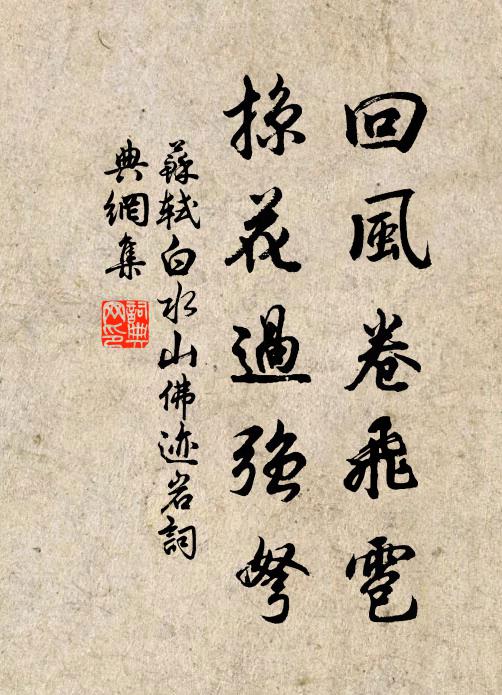 回風卷飛雹
掠花過強弩
蘇軾白水山佛迹岩詞
典網集
詞典網印